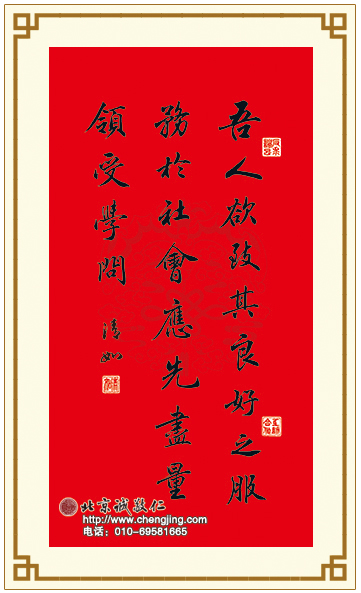 吾人欲致其良好之服
務於社會應先盡量
領受學問
清如
北京诚敬仁
http://www.chengjing.com
电话：010-69581665